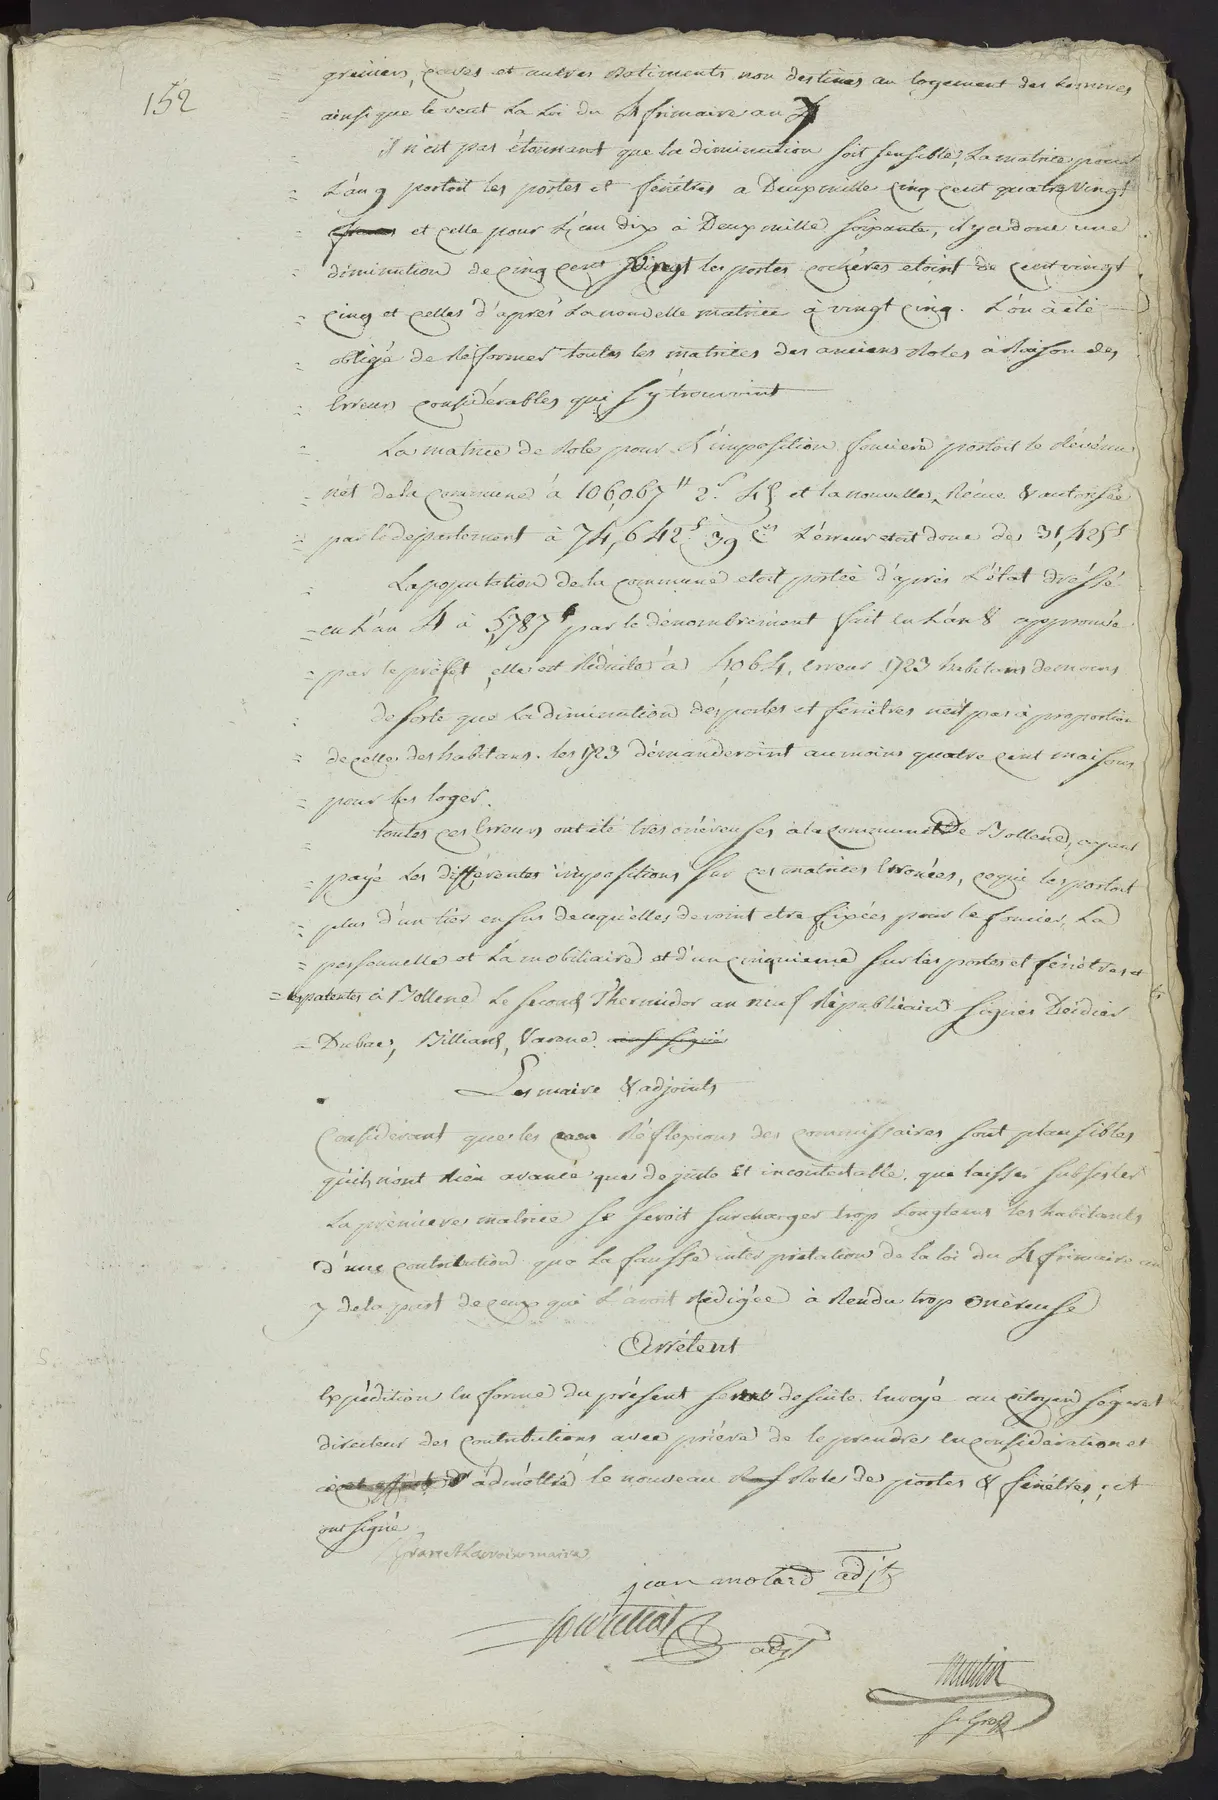 152
greniers, caves et autres Batiments non destinés au logement des hommes
ainsi que le veut La Loi du 4 frimaire an 7
il n'est pas étonnant que la diminution soit sensible, La matrice pour
L'an 9 portoit les portes et fenêtres a Deux mille cinq cent quatre vingt
et celle pour L'an dix à Deux mille soixante, il y a donc une
diminution de cinq cent vingt les portes cochères etoint de cent vingt
cinq et celles d'après La nouvelle matrice à vingt cinq. L'on à été
obligé de Réformer toutes les matrices des anciens Roles à Raison des
Erreurs considérables qui s'y trouvoint
La matrice de Role pour L'imposition foncière portoit le Révénu
nét de la commune à 106,067 ₶ 2 s 4 d et la nouvelle, Récue & autorisée
par le departement à 74,642 f 39 c.es L'érreur etoit donc de 31,425 f
La population de la commune etoit portée d'après L'état dréssé
en L'an 4 à 5787 par le dénombrement fait en L'an 8 approuvé
par le préfet, elle est Réduite à 4,064, erreur 1723 habitans de moins
De sorte que La diminution des portes et fenêtres n'est pas à proportion
de celle des habitans. les 1723 démanderoint au moins quatre cent maisons
pour les loger.
toutes ces Erreurs ont été très onéreuses à la commune De Bollene, ayant
payé Les différentes impositions sur ces matrices Erronées, ce qui les portoit
plus d'un tier en sus de ce qu'elles devoint etre fixées pour le foncier, La
personnelle et La mobiliaire et d'un cinquieme sur les portes et fénêtres et
les patentes à Bollene Le second Thermidor an neuf Républicain signés Deidier
Dubac, Billiard, Varene. ainsi signé
Les maire & adjoints
Considerant que les Réflexions des commissaires sont plausibles
qu'ils n'ont Rien avancé que de juste et incontestable. que laisser subsister
La premiere matrice se seroit surcharger trop Longtems les habitants
d'une contribution que La fausse interprétation de la loi du 4 frimaire an
7 de la part de ceux qui L'avoit Rédigée à Rendu trop onéreuse
Arrêtent
Expédition en forme du présent sera de suite Envoyé au citoyen séguret
directeur des contributions avec prière de le prendre en considération et
d'admettre le nouveau Role des portes & fenêtres, et
ont signé
maire
jean molard adjt
adjt